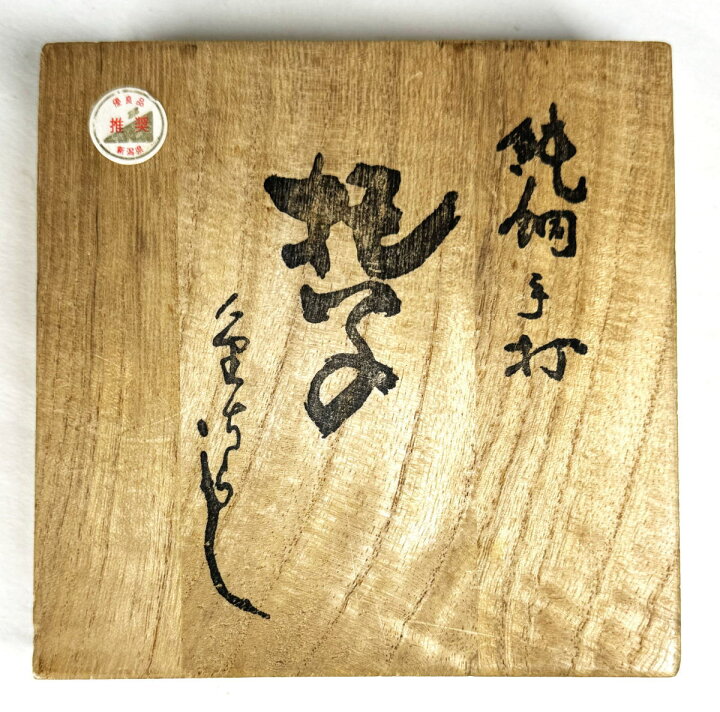 純銅手打
托子
優良品
推奨
新潟県